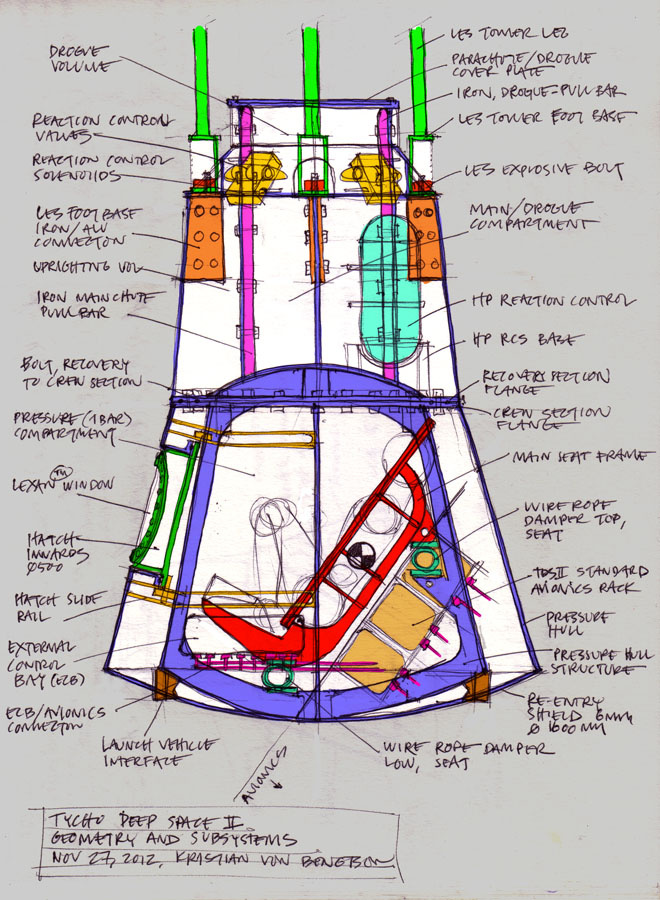 DROGUE
VOLUME
REACTION CONTROL
VALVES
REACTION CONTROL
SOLENOIDS
LES FOOT BASE
IRON/ALU
CONNECTION
UPRIGHTING VOL
IRON MAIN CHUTE
PULL BAR
BOLT, RECOVERY
TO CREW SECTION
PRESSURE (1 BAR)
COMPARTMENT
LEXAN TM WINDOW
HATCH
INWARDS
Ø500
HATCH SLIDE
RAIL
EXTERNAL
CONTROL
BAY (ECB)
ECB/AVIONICS
CONNECTION
LAUNCH VEHICLE
INTERFACE
AVIONICS
LES TOWER LEG
PARACHUTE/DROGUE
COVER PLATE
IRON, DROGUE-PULL BAR
LES TOWER FOOT BASE
LES EXPLOSIVE BOLT
MAIN/DROGUE
COMPARTMENT
HP REACTION CONTROL
HP RCS BASE
RECOVERY SECTION
FLANGE
CREW SECTION
FLANGE
MAIN SEAT FRAME
WIRE ROPE
DAMPER TOP,
SEAT
TDSII STANDARD
AVIONICS RACK
PRESSURE
HULL
PRESSURE HULL
STRUCTURE
RE-ENTRY
SHIELD 6MM
Ø 1600 MM
WIRE ROPE DAMPER
LOW, SEAT
TYCHO DEEP SPACE II
GEOMETRY AND SUBSYSTEMS
NOV 27, 2012, KRISTIAN VON BENGTSON